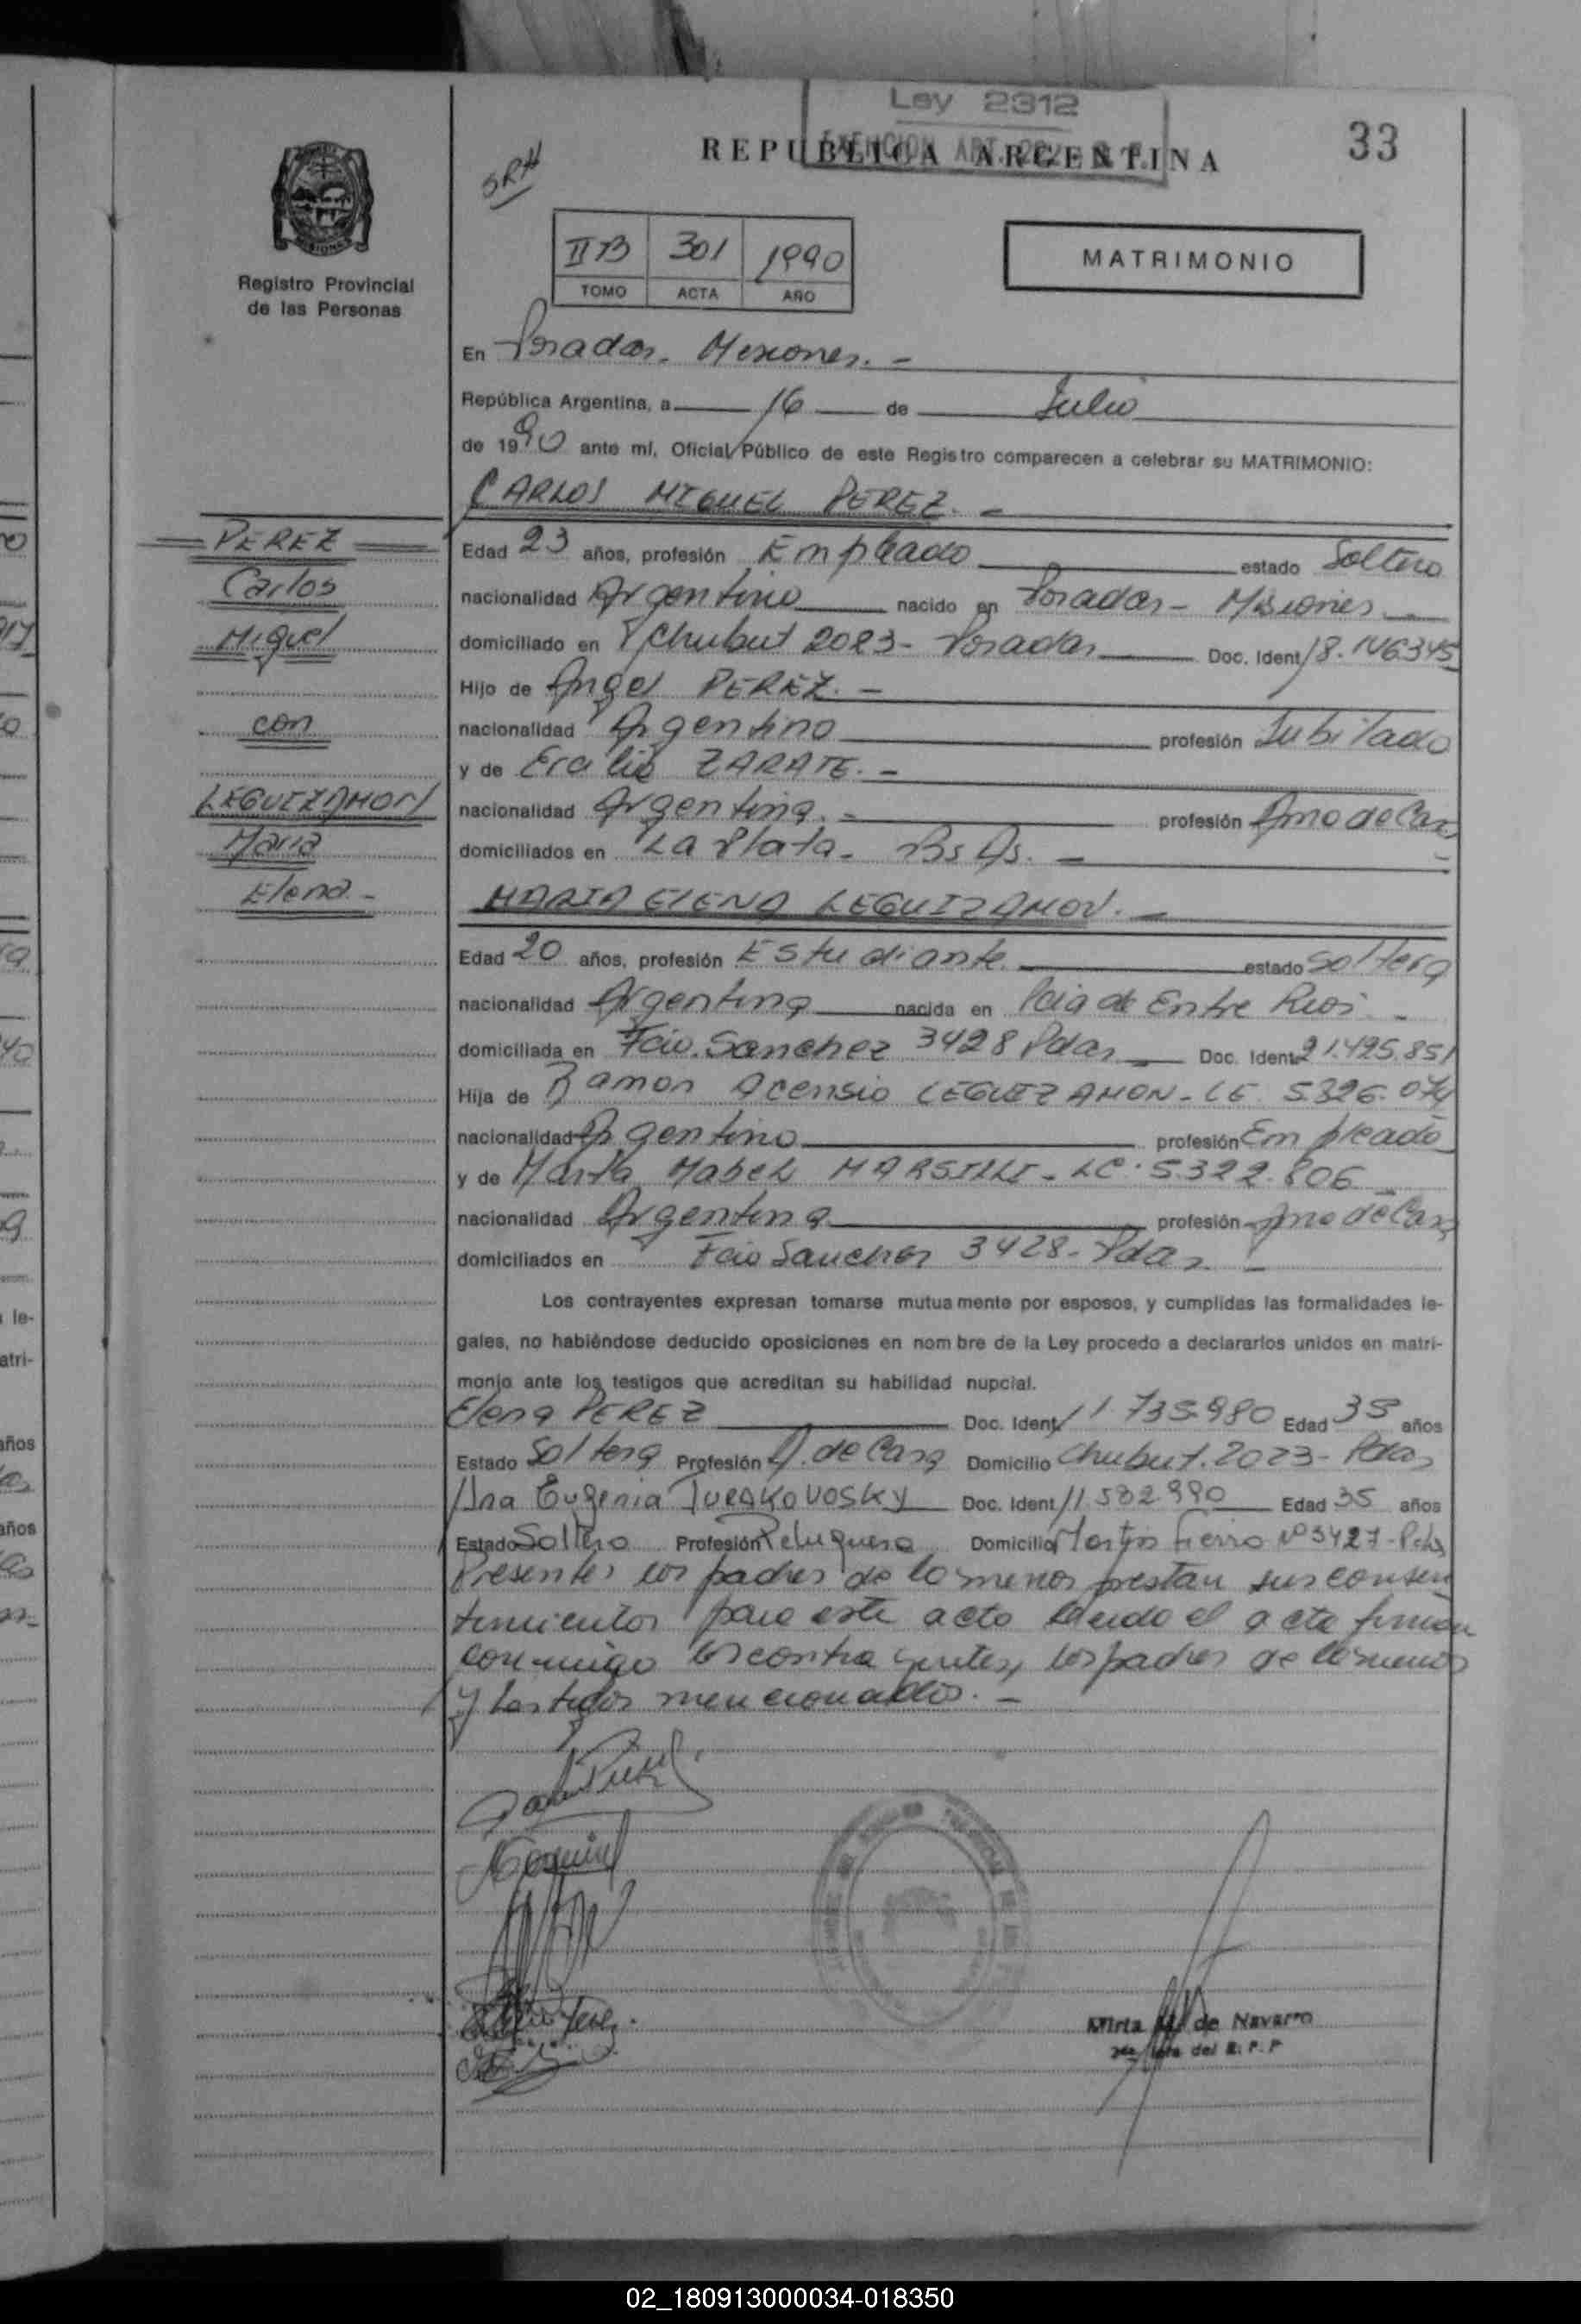 Ley 2312
REPUBLICA ARGENTINA
33
SRH
II B 301 1990
TOMO ACTA AÑO
MATRIMONIO
Registro Provincial
de las Personas
En Posadas. Misiones. -
República Argentina, a 16 de Julio
de 1990 ante mí, Oficial Público de este Registro comparecen a celebrar su MATRIMONIO:
CARLOS MIGUEL PEREZ. -
PEREZ
Carlos
Miguel
con
LEGUIZAMON
Maria
Elena -
Edad 23 años, profesión Empleado estado Soltero
nacionalidad Argentino nacido en Posadas - Misiones
domiciliado en Chubut 2023 - Posadas Doc. Ident 18.146345
Hijo de Angel PEREZ. -
nacionalidad Argentino profesión Jubilado
y de ZARATE. -
nacionalidad Argentina. - profesión Ama de Casa
domiciliados en La Plata - Bs As. -
MARIA ELENA LEGUIZAMON. -
Edad 20 años, profesión Estudiante estado Soltera
nacionalidad Argentina nacida en Pcia de Entre Rios. -
domiciliada en Fcio. Sanchez 3428 Pdas Doc. Ident 21.495.851
Hija de Ramon Acensio LEGUIZAMON - LE. 5326.074
nacionalidad Argentino profesión Empleado
y de Marta Mabel MARSILLI - LC. 5.322.806
nacionalidad Argentina profesión Ama de Casa
domiciliados en Fcio Sanchez 3428 - Pdas -
Los contrayentes expresan tomarse mutuamente por esposos, y cumplidas las formalidades le-
gales, no habiéndose deducido oposiciones en nombre de la Ley procedo a declararlos unidos en matri-
monio ante los testigos que acreditan su habilidad nupcial.
Elena PEREZ Doc. Ident 11.735.980 Edad 35 años
Estado Soltera Profesión A. de Casa Domicilio Chubut. 2023 - Pdas
Ana Eugenia TURAKOVOSKY Doc. Ident 11.582990 Edad 35 años
Estado Soltera Profesión Peluquera Domicilio Martin Fierro Nº 3427 - Pdas
Presentes los padres de la menor prestan sus consen
timientos para este acto Leido el acta firman
conmigo los contrayentes, los padres de la menor
y testigos mencionados. -
Mirta de Navarro
del R. P. P
02_180913000034-018350